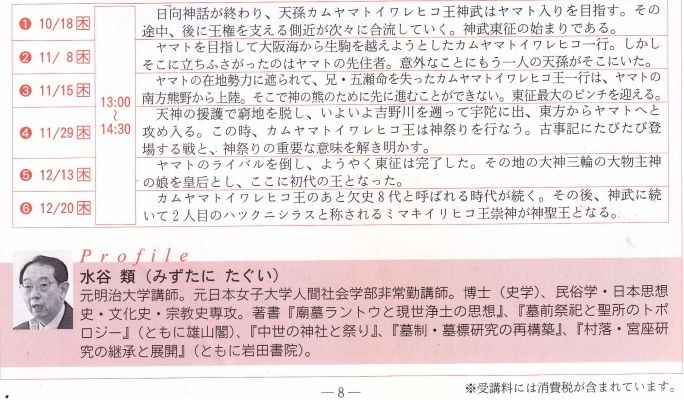 ❶ 10/18 木
日向神話が終わり、天孫カムヤマトイワレヒコ王神武はヤマト入りを目指す。その
途中、後に王権を支える側近が次々に合流していく。神武東征の始まりである。
❷ 11/ 8 木
ヤマトを目指して大阪海から生駒を越えようとしたカムヤマトイワレヒコ一行。しかし
そこに立ちふさがったのはヤマトの先住者。意外なことにもう一人の天孫がそこにいた。
❸ 11/15 木
ヤマトの在地勢力に遮られて、兄・五瀬命を失ったカムヤマトイワレヒコ王一行は、ヤマトの
南方熊野から上陸。そこで神の熊のために先に進むことができない。東征最大のピンチを迎える。
13:00
～
14:30
❹ 11/29 木
天神の援護で窮地を脱し、いよいよ吉野川を遡って宇陀に出、東方からヤマトへと
攻め入る。この時、カムヤマトイワレヒコ王は神祭りを行なう。古事記にたびたび登
場する戦と、神祭りの重要な意味を解き明かす。
❺ 12/13 木
ヤマトのライバルを倒し、ようやく東征は完了した。その地の大神三輪の大物主神
の娘を皇后とし、ここに初代の王となった。
❻ 12/20 木
カムヤマトイワレヒコ王のあと欠史8代と呼ばれる時代が続く。その後、神武に続
いて2人目のハツクニシラスと称されるミマキイリヒコ王崇神が神聖王となる。
Profile
水谷 類（みずたに たぐい）
元明治大学講師。元日本女子大学人間社会学部非常勤講師。博士（史学）、民俗学・日本思想
史・文化史・宗教史専攻。著書『廟墓ラントウと現世浄土の思想』、『墓前祭祀と聖所のトポ
ロジー』（ともに雄山閣）、『中世の神社と祭り』、『墓制・墓標研究の再構築』、『村落・宮座研
究の継承と展開』（ともに岩田書院）。
―8―
※受講料には消費税が含まれています。